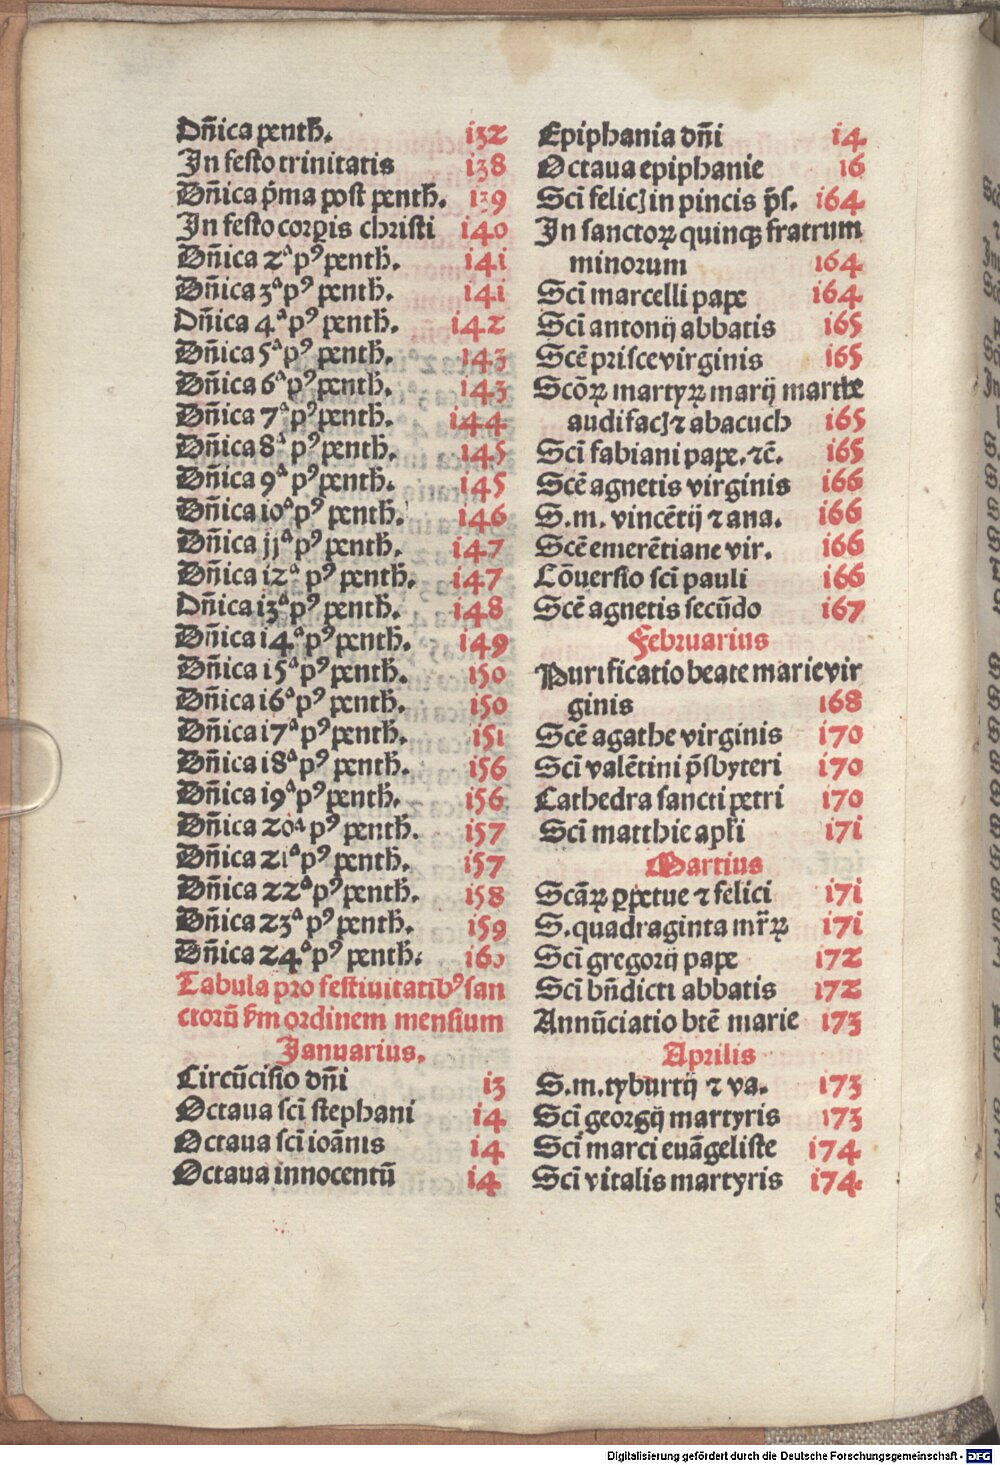 Dn̄ica pentħ. i32
In festo trinitatis i38
Dn̄ica p̄ma post pentħ. i39
In festo corꝑis christi i40
Dn̄ica 2ª pꝰ pentħ. i4i
Dn̄ica 3ª pꝰ pentħ. i4i
Dn̄ica 4ª pꝰ pentħ. i42
Dn̄ica 5ª pꝰ pentħ. i43
Dn̄ica 6ª pꝰ pentħ. i43
Dn̄ica 7ª pꝰ pentħ. i44
Dn̄ica 8ª pꝰ pentħ. i45
Dn̄ica 9ª pꝰ pentħ. i45
Dn̄ica i0ª pꝰ pentħ. i46
Dn̄ica jjª pꝰ pentħ. i47
Dn̄ica i2ª pꝰ pentħ. i47
Dn̄ica i3ª pꝰ pentħ. i48
Dn̄ica i4ª pꝰ pentħ. i49
Dn̄ica i5ª pꝰ pentħ. i50
Dn̄ica i6ª pꝰ pentħ. i50
Dn̄ica i7ª pꝰ pentħ. i5i
Dn̄ica i8ª pꝰ pentħ. i56
Dn̄ica i9ª pꝰ pentħ. i56
Dn̄ica 20ª pꝰ pentħ. i57
Dn̄ica 2iª pꝰ pentħ. i57
Dn̄ica 22ª pꝰ pentħ. i58
Dn̄ica 23ª pꝰ pentħ. i59
Dn̄ica 24ª pꝰ pentħ. i60
Tabula pro festiuitatibꝰ san
ctorū ẜm ordinem mensium
Januarius.
Circūcisio dn̄i i3
Octaua scī stephani i4
Octaua scī ioānis i4
Octaua innocentū i4
Epiphania dn̄i i4
Octaua epiphanie i6
Scī felicꝭ in pincis p̄s. i64
In sanctoꝝ quinqꝫ fratrum
minorum i64
Scī marcelli pape i64
Scī antonij abbatis i65
Scē prisce virginis i65
Scōꝝ martyꝝ marij marthe
audifacꝭ ⁊ abacuch i65
Scī fabiani pape. ⁊c̄. i65
Scē agnetis virginis i66
S.m. vincētij ⁊ ana. i66
Scē emerētiane vir. i66
Cōuersio scī pauli i66
Scē agnetis secūdo i67
Februarius
Purificatio beate marie vir
ginis i68
Scē agathe virginis i70
Scī valētini p̄sbyteri i70
Cathedra sancti petri i70
Scī matthie apłi i7i
Martius
Scāꝝ ꝑpetue ⁊ felici i7i
S. quadraginta mr̄ꝝ i7i
Scī gregorij pape i72
Scī bn̄dicti abbatis i72
Annūciatio btē marie i73
Aprilis
S.m. tyburtij ⁊ va. i73
Scī georgij martyris i73
Scī marci euāgeliste i74
Scī vitalis martyris i74
Digitalisierung gefördert durch die Deutsche Forschungsgemeinschaft - DFG